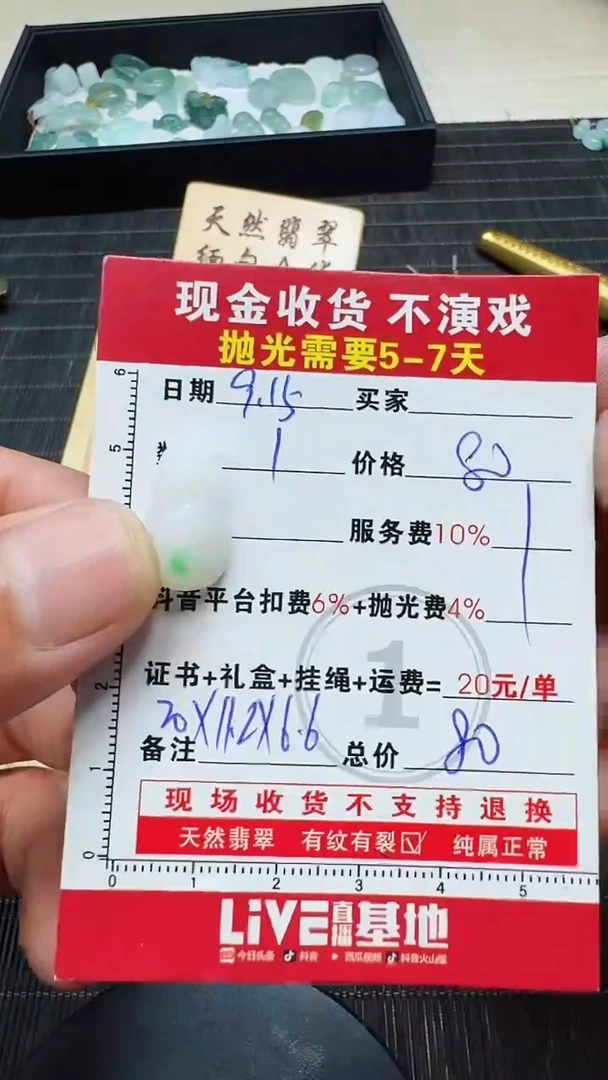 天然翡翠
现金收货 不演戏
抛光需要5-7天
日期 9.15 买家
1 价格 80
服务费10%
抖音平台扣费6%+抛光费4%
1
证书+礼盒+挂绳+运费= 20元/单
20X11.2X6.6
备注 总价 80
现场收货不支持退换
天然翡翠 有纹有裂☑ 纯属正常
6
5
2
1
0
0 1 2 3 4 5
LiVE直播基地
今日头条 抖音 西瓜视频 抖音火山版